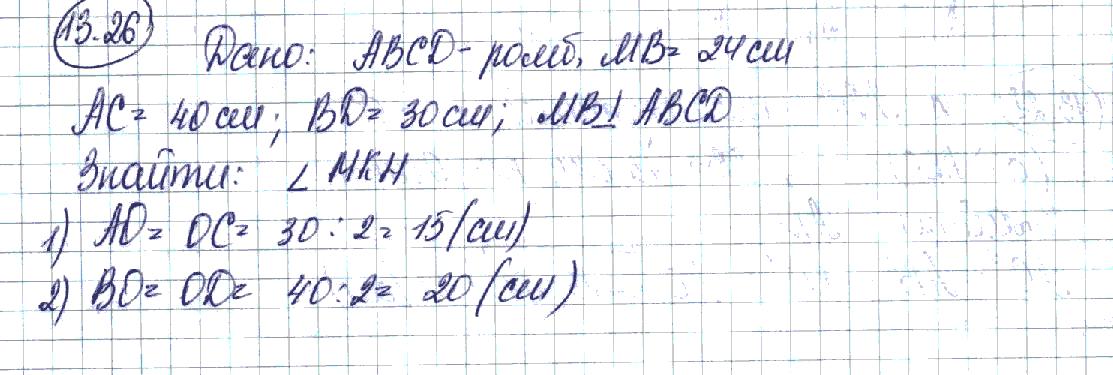 13.26
Дано: ABCD - ромб, MB = 24 см
AC = 40 см; BD = 30 см; MB ⊥ ABCD
Знайти: ∠ MKH
1) AO = OC = 30 : 2 = 15 (см)
2) BO = OD = 40 : 2 = 20 (см)